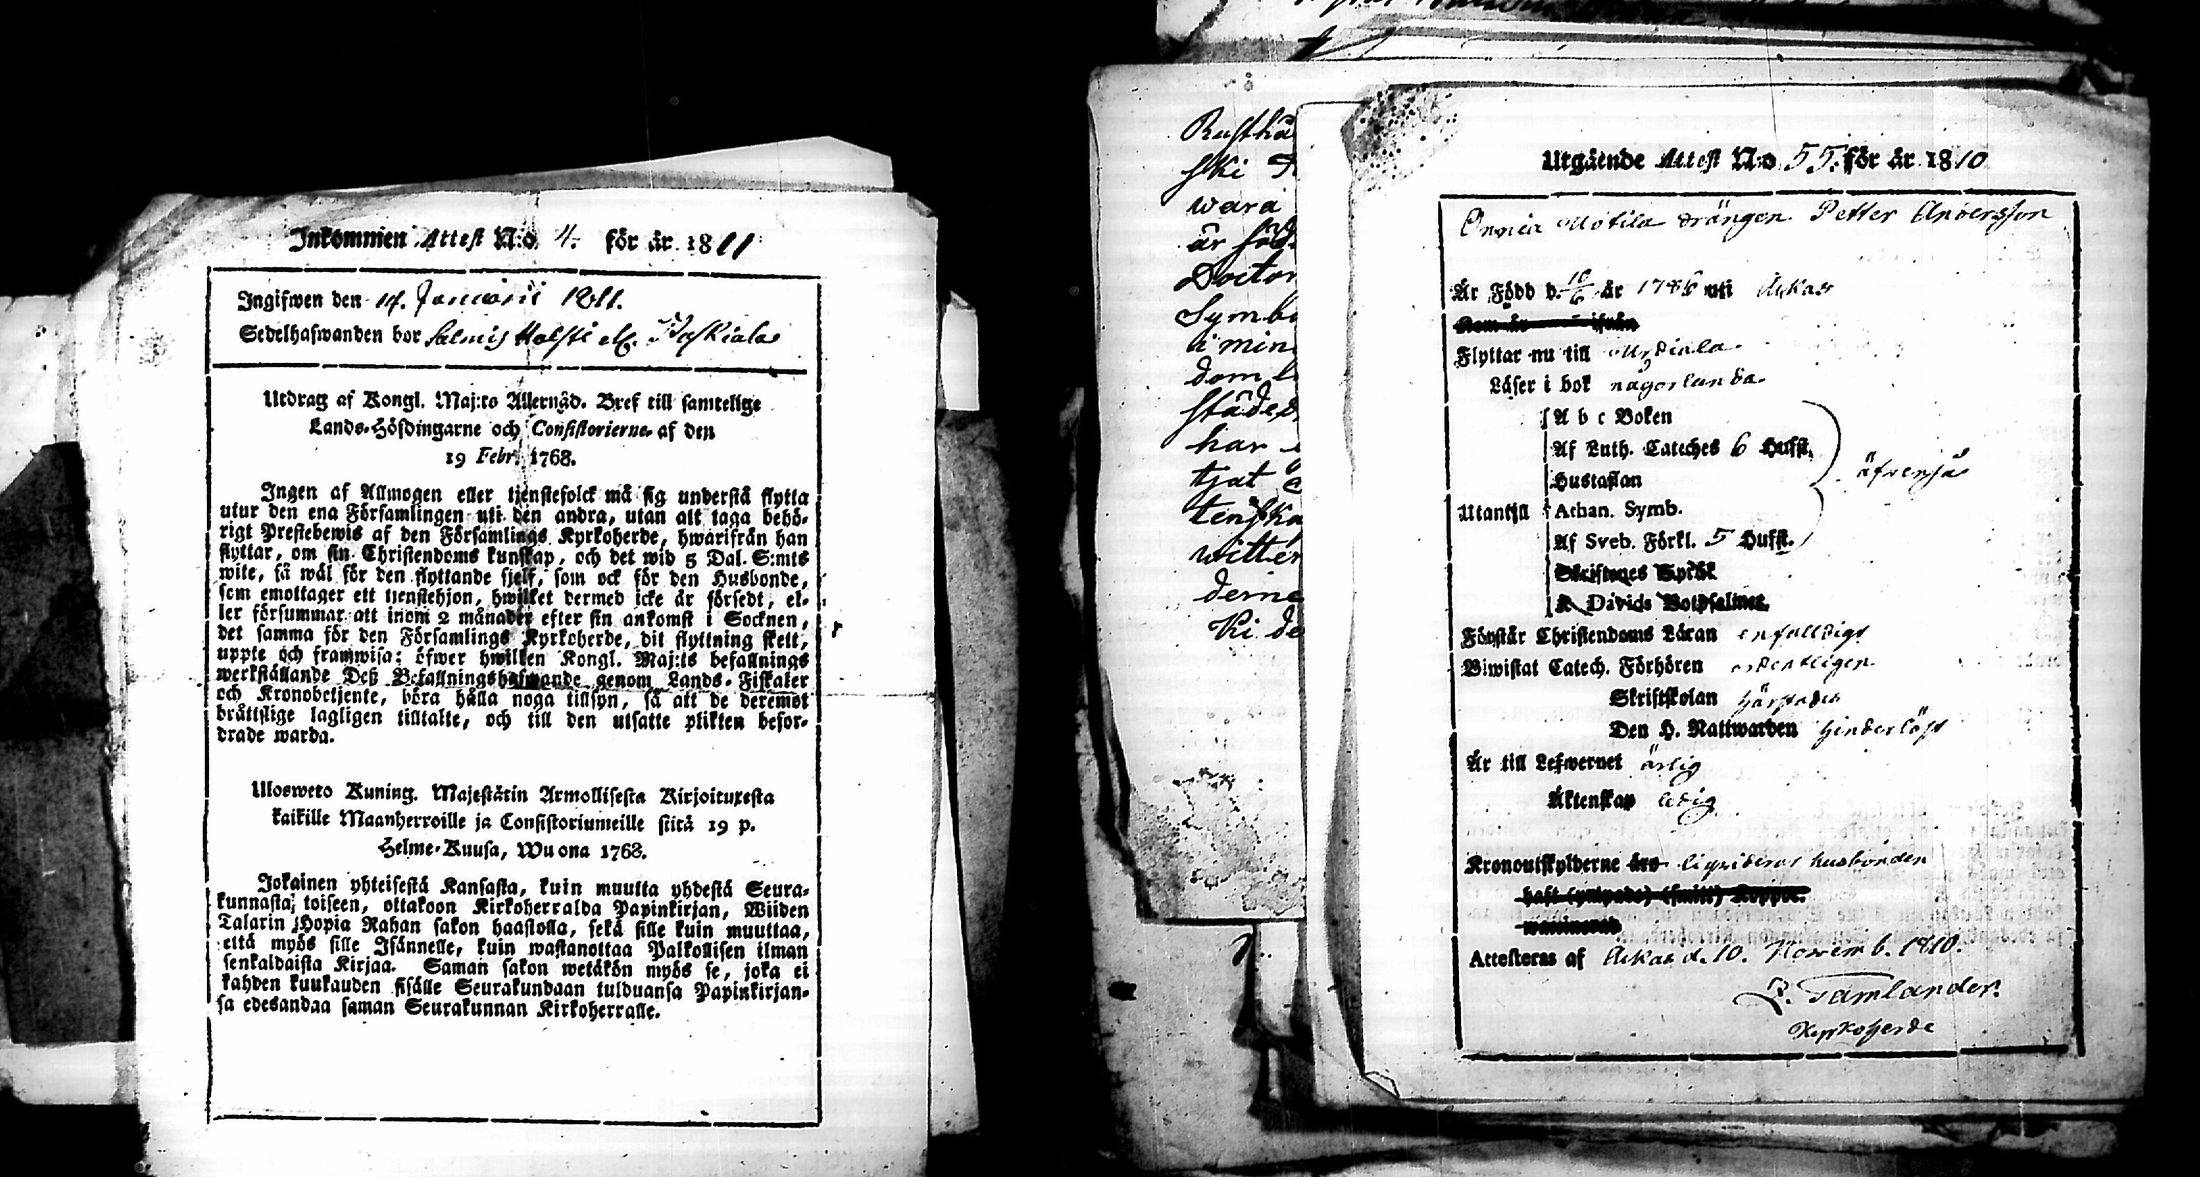 Inkommen Attest N:o 4. för år 1811
Ingifwen den 14. Januarii 1811.
Sedelhafwanden bor Salmis Holsti
Utdrag af Kongl. Maj:ts Allernåd. Bref till samtelige
Lands-Höfdingarne och Consistorierne af den
19 Febr. 1768.
Ingen af Allmogen eller tjenstefolck må sig understå flytta
utur den ena Församlingen uti den andra, utan alt taga behö-
rigt Prestebewis af den Församlings Kyrkoherde, hwarifrån han
flyttar, om sin Christendoms kunskap, och det wid 5 Dal. S:mts
wite, så wäl för den flyttande sjelf, som ock för den Husbonde,
som emottager ett tjenstehjon, hwilket dermed icke är försedt, el-
ler försummar att inom 2 månader efter sin ankomst i Socknen,
det samma för den Församlings Kyrkoherde, dit flyttning skett,
uppte och framwisa: öfwer hwilken Kongl. Maj:ts befallnings
werkställande Deß Befallningshafwande genom Lands-Fiskaler
och Kronobetjente, böra hålla noga tillsyn, så att de deremot
bråttslige lagligen tilltalte, och till den utsatte plikten befor-
drade warda.
Ulosweto Kuning. Majestätin Armollisesta Kirjoituxesta
kaikille Maanherroille ja Consistoriumeille siitä 19 p.
Helme-Kuusa, Wuona 1768.
Jokainen yhteisestä Kansasta, kuin muutta yhdestä Seura-
kunnasta toiseen, ottakoon Kirkoherralda Papinkirjan, Wiiden
Talarin Hopia Rahan sakon haastolla, sekä sille kuin muuttaa,
että myös sille Isännelle, kuin wastanottaa Palkollisen ilman
senkaldaista Kirjaa. Saman sakon wetäkön myös se, joka ei
kahden kuukauden sisälle Seurakundaan tulduansa Papinkirjan-
sa edesandaa saman Seurakunnan Kirkoherralle.
Rusthå
ski
wara
är föd
Doctor
Symbo
a min
dom
städes
har
tjat
tenska
witter
derne
Ki de
Utgående Attest N:o 55. för år 1810
Onnia Mötila drängen Petter Andersson
Är Född d. 16/6 år 1786 uti Askas
Kom år ifrån
Flyttar nu till
Läser i bok någorlunda
A b c Boken
Af Luth. Cateches 6 Hufst.
Hustaflan
äfvenså
Utantill Athan. Symb.
Af Sveb. Förkl. 5 Hufst.
Skriftenes Språk
K Davids Botpsalmer.
Förstår Christendoms Läran enfaldigt
Biwistat Catech. Förhören ordentligen
Skriftskolan härstädes
Den H. Nattwarden hinderlöst
Är till Lefwernet ärlig
Äktenskap ledig
Kronoutskylderne års liqviderar husbonden
haft (ympade) (smitt) Koppor.
Attesteras af Askas d. 10. Novemb. 1810.
Tamlander.
Kyrkoherde